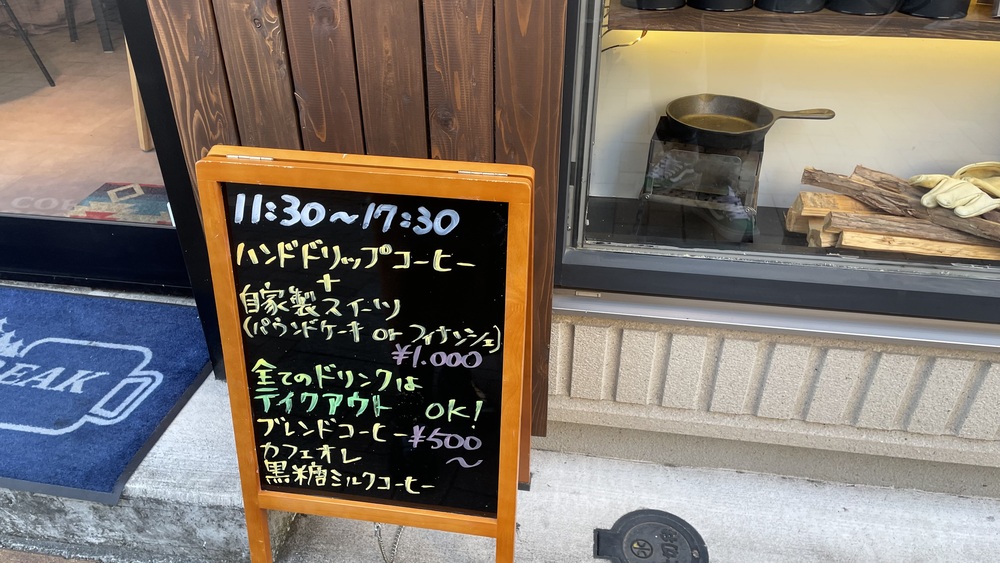 11:30～17:30
ハンドドリップコーヒー
+
自家製スイーツ
(パウンドケーキ or フィナンシェ)
¥1.000
全てのドリンクは
テイクアウト OK!
ブレンドコーヒー ¥500
カフェオレ ～
黒糖ミルクコーヒー
EAK